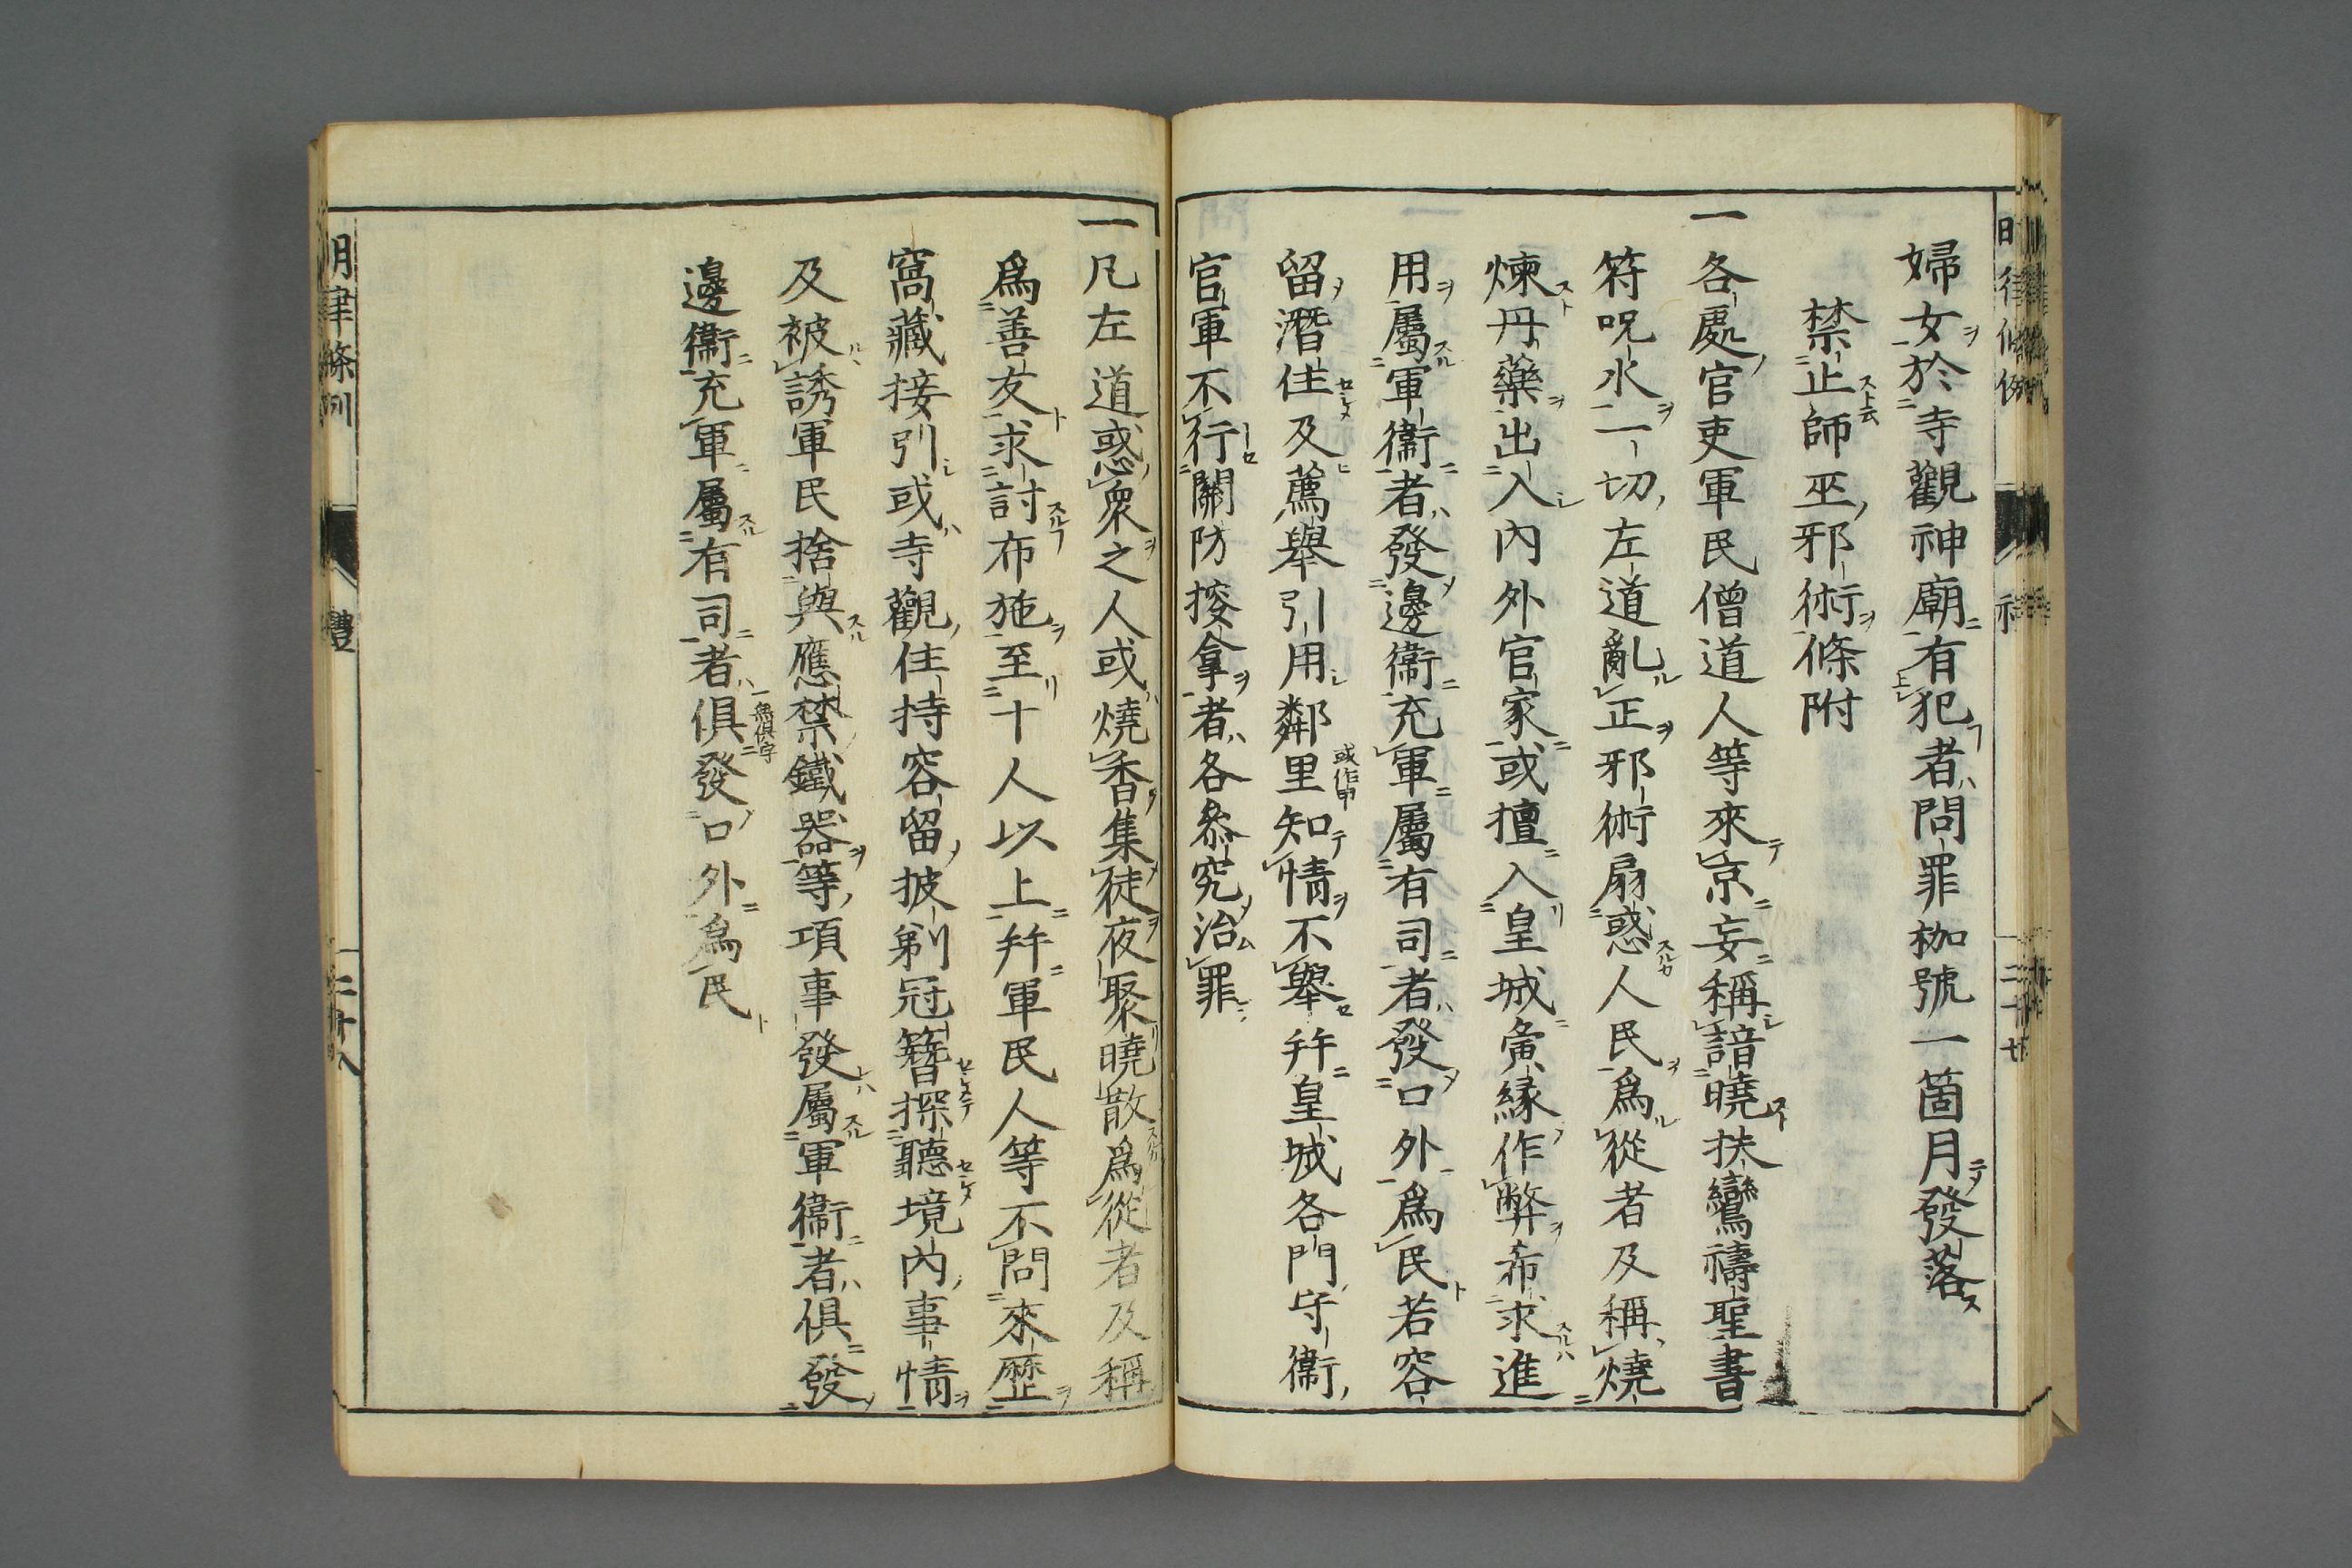 婦女於寺觀神廟有犯者問罪枷號一箇月發落
禁止師巫邪術條附
一各處官吏軍民僧道人等來京妄稱諳曉扶鸞禱聖書
符呪水一切左道亂正邪術扇惑人民爲從者及稱燒
煉丹藥出入內外官家或擅入皇城夤緣作弊希求進
用屬軍衞者發邊衞充軍屬有司者發口外爲民若容
留潛住及薦舉引用鄰里知情不舉幷皇城各門守衞
或作甲
官軍不行關防搜拿者各參究治罪
一凡左道惑衆之人或燒香集徒夜聚曉散爲從者及稱
爲善友求討布施至十人以上幷軍民人等不問來歷
窩藏接引或寺觀住持容留披剃冠簪探聽境內事情
及被誘軍民捨與應禁鐵器等項事發屬軍衞者俱發
邊衞充軍屬有司者俱發口外爲民
一無俱字
明律條例
禮
二十八